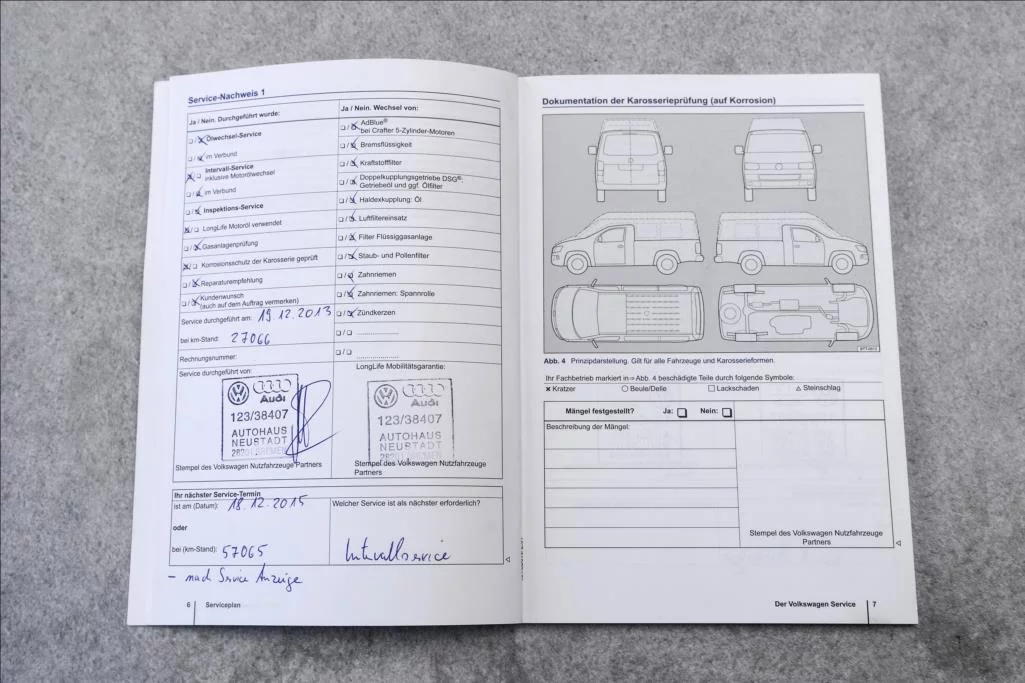 Service-Nachweis 1
Ja / Nein. Durchgeführt wurde:
Ölwechsel-Service
im Verbund
Intervall-Service
inklusive Motorölwechsel
im Verbund
Inspektions-Service
LongLife Motoröl verwendet
Gasanlagenprüfung
Korrosionsschutz der Karosserie geprüft
Reparaturempfehlung
Kundenwunsch
(auch auf dem Auftrag vermerken)
Service durchgeführt am: 19.12.2013
bei km-Stand: 27066
Rechnungsnummer:
Service durchgeführt von:
Audi
123/38407
AUTOHAUS
NEUSTADT
BREMEN
Stempel des Volkswagen Nutzfahrzeuge Partners
Ja / Nein. Wechsel von:
AdBlue®
bei Crafter 5-Zylinder-Motoren
Bremsflüssigkeit
Kraftstofffilter
Doppelkupplungsgetriebe DSG®:
Getriebeöl und ggf. Ölfilter
Haldexkupplung: Öl
Luftfiltereinsatz
Filter Flüssiggasanlage
Staub- und Pollenfilter
Zahnriemen
Zahnriemen: Spannrolle
Zündkerzen
LongLife Mobilitätsgarantie:
Audi
123/38407
AUTOHAUS
NEUSTADT
Stempel des Volkswagen Nutzfahrzeuge
Partners
Ihr nächster Service-Termin
ist am (Datum): 18.12.2015
oder
bei (km-Stand): 57065
Welcher Service ist als nächster erforderlich?
Intervallservice
– nach Service Anzeige
6 Serviceplan
Dokumentation der Karosserieprüfung (auf Korrosion)
Abb. 4 Prinzipdarstellung. Gilt für alle Fahrzeuge und Karosserieformen.
Ihr Fachbetrieb markiert in ⇒ Abb. 4 beschädigte Teile durch folgende Symbole:
Kratzer Beule/Delle Lackschaden Steinschlag
Mängel festgestellt? Ja: Nein:
Beschreibung der Mängel:
Stempel des Volkswagen Nutzfahrzeuge
Partners
Der Volkswagen Service 7